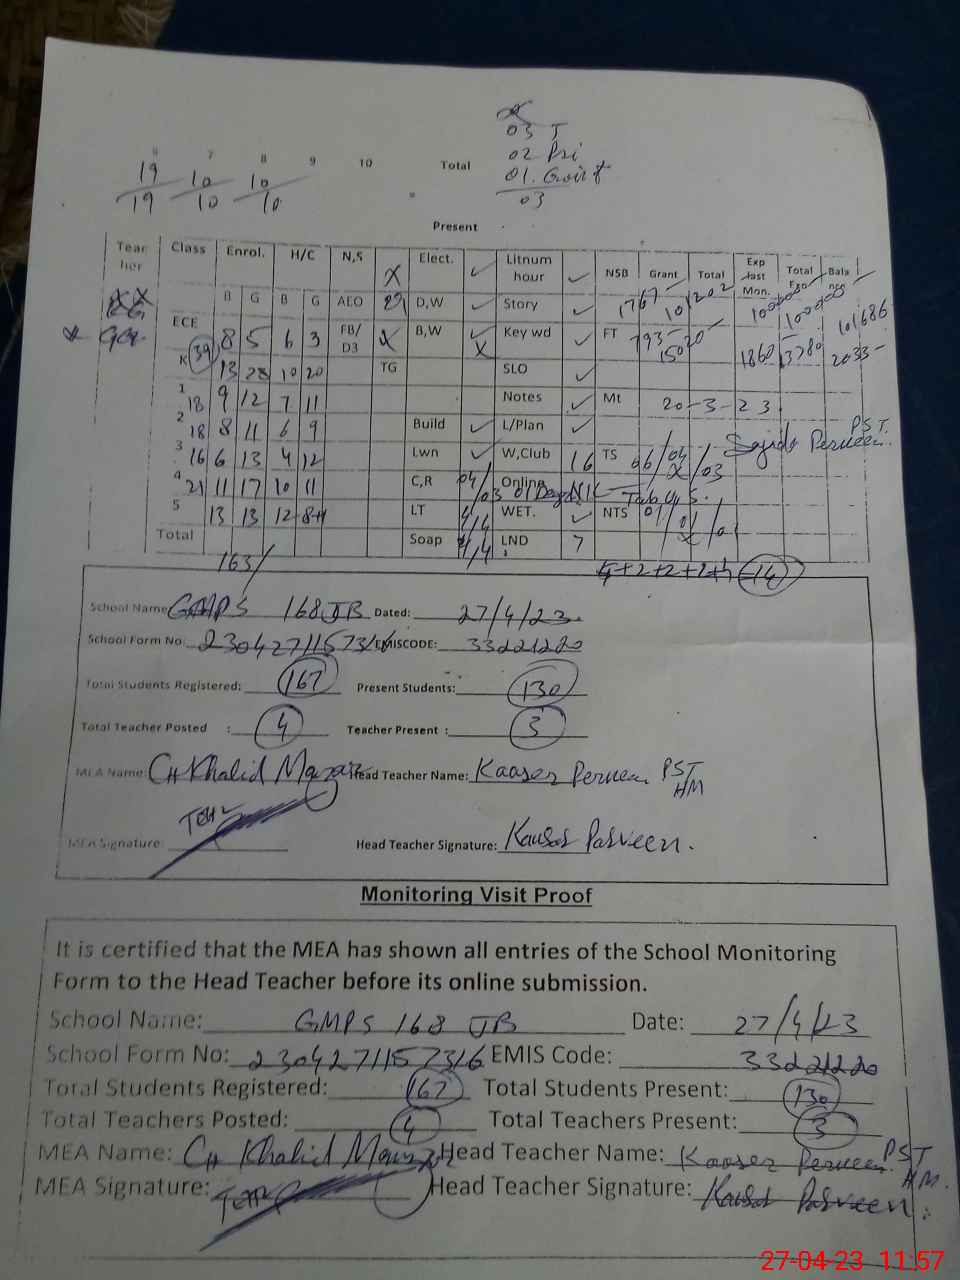 6 7 8 9 10 Total
19 10 10
19 10 10
03 T
02 Psi
03
Present
Teacher Class Enrol. H/C N,S X Elect. ✓ Litnum hour ✓ NSB Grant Total Exp last Mon. Total Exp Balance
B G B G AEO D,W ✓ Story ✓ 1767 101202 100000 100000 101686
ECE 8 5 6 3 FB/D3 X B,W ✓ X Key wd ✓ FT 793 15020 1860 13780 2033
K 39 13 28 10 20 TG SLO ✓
1 18 9 12 7 11 Notes ✓ Mt 20-3-23
2 18 8 11 6 9 Build ✓ L/Plan ✓ Sajida Perveen PST.
3 16 6 13 4 12 Lwn ✓ W,Club 16 TS 06/04/03
4 21 11 17 10 11 C,R 04/03 Online Tab
5 13 13 12 8 LT 4/4 WET. ✓ NTS 01/01
Total Soap 4/4 LND 7
163/ 4+2+2+2+4 = 14
School Name: GMPS 168 JB Dated: 27/4/23
School Form No: 2304271157316 EMISCODE: 33221220
Total Students Registered: 167 Present Students: 130
Total Teacher Posted : 4 Teacher Present : 3
MEA Name: CH Khalid Head Teacher Name: Kaaser Perveen PST HM
MEA Signature: Head Teacher Signature: Kausar Parveen.
Monitoring Visit Proof
It is certified that the MEA has shown all entries of the School Monitoring
Form to the Head Teacher before its online submission.
School Name: GMPS 168 JB Date: 27/4/23
School Form No: 2304271157316 EMIS Code: 33221220
Total Students Registered: 167 Total Students Present: 130
Total Teachers Posted: 4 Total Teachers Present: 3
MEA Name: CH Khalid Head Teacher Name: Kaaser Perveen PST HM.
MEA Signature: Head Teacher Signature: Kausar Parveen.
27-04-23 11:57